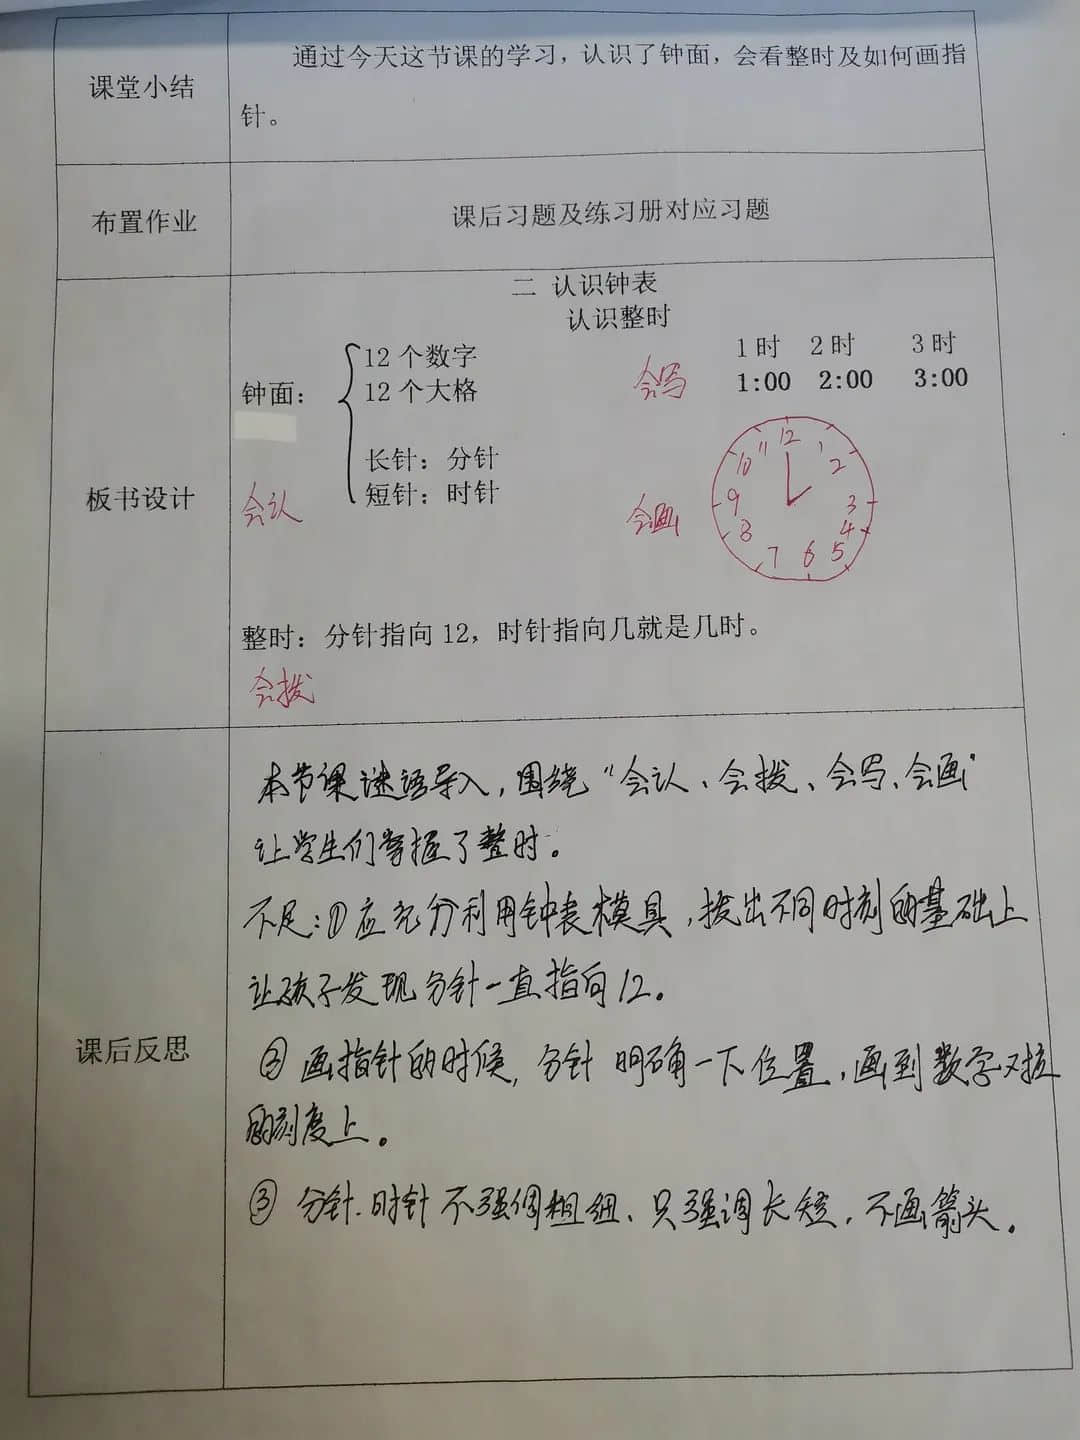 课堂小结
通过今天这节课的学习，认识了钟面，会看整时及如何画指
针。
布置作业
课后习题及练习册对应习题
板书设计
二 认识钟表
认识整时
钟面：
12 个数字
12 个大格
长针：分针
短针：时针
会认
会写
1 时 2 时 3 时
1:00 2:00 3:00
会画
12
1
2
3
4
5
6
7
8
9
10
11
整时：分针指向 12，时针指向几就是几时。
会拨
课后反思
本节课谜语导入，围绕“会认、会拨、会写、会画”
让学生们掌握了整时。
不足：①应充分利用钟表模具，拨出不同时刻的基础上
让孩子发现分针一直指向12。
②画指针的时候，分针明确一下位置，画到数字对应
的刻度上。
③分针、时针不强调粗细、只强调长短，不画箭头。